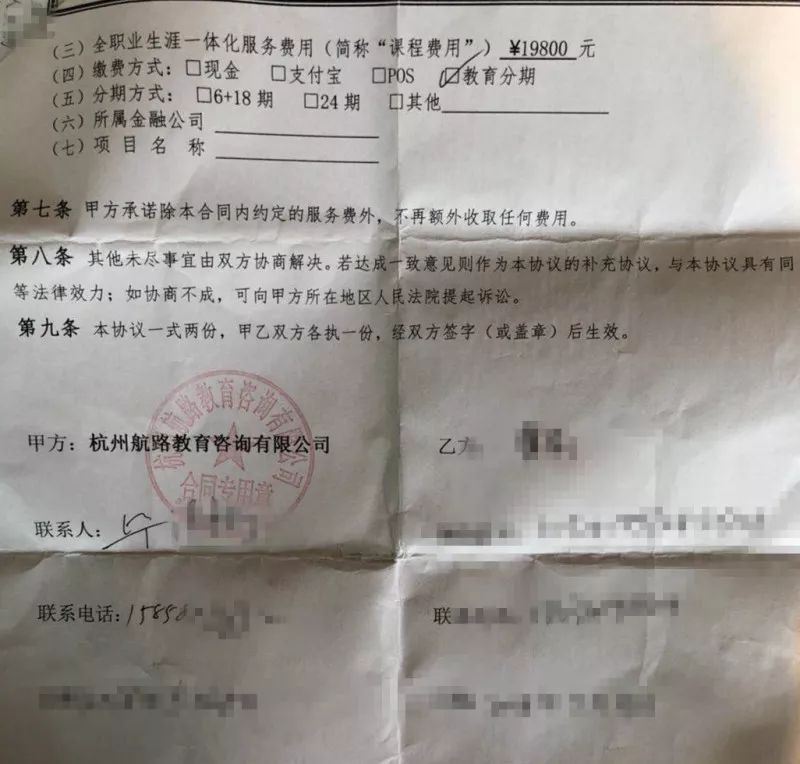 (三) 全职业生涯一体化服务费用（简称“课程费用”）¥19800 元
(四) 缴费方式：□现金 □支付宝 □POS ☑教育分期
(五) 分期方式：□6+18 期 □24 期 □其他
(六) 所属金融公司
(七) 项目名称
第七条 甲方承诺除本合同内约定的服务费外，不再额外收取任何费用。
第八条 其他未尽事宜由双方协商解决。若达成一致意见则作为本协议的补充协议，与本协议具有同
等法律效力；如协商不成，可向甲方所在地区人民法院提起诉讼。
第九条 本协议一式两份，甲乙双方各执一份，经双方签字（或盖章）后生效。
杭州航路教育咨询有限公司
合同专用章
甲方：杭州航路教育咨询有限公司
乙方
联系人：
联系电话：15858
联